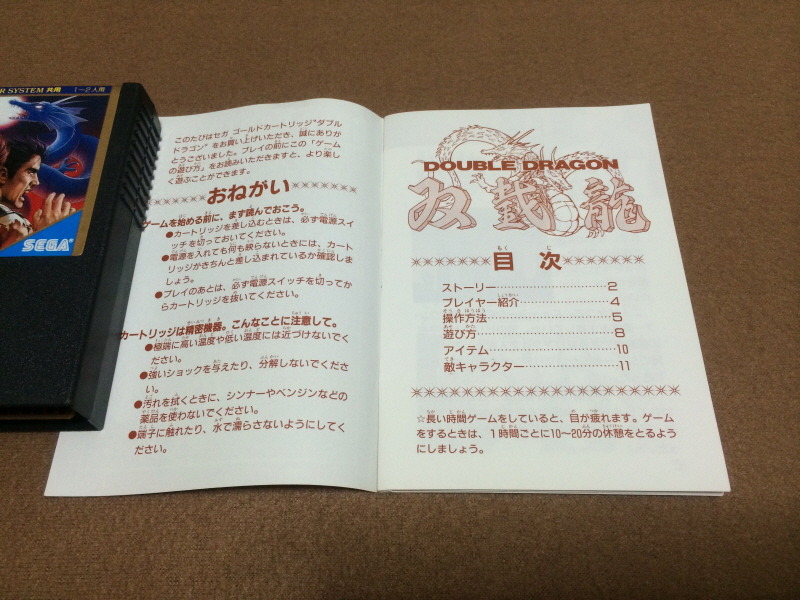 R SYSTEM 共用 1～2人用
SEGA
このたびはセガ ゴールドカートリッジ"ダブル
ドラゴン"をお買い上げいただき、誠にありが
とうございました。プレイの前にこの「ゲーム
の遊び方」をお読みいただきますと、より楽し
く遊ぶことができます。
おねがい
ゲームを始める前に、まず読んでおこう。
●カートリッジを差し込むときは、必ず電源スイ
ッチを切っておいてください。
●電源を入れても何も映らないときには、カート
リッジがきちんと差し込まれているか確認しま
しょう。
●プレイのあとは、必ず電源スイッチを切ってか
らカートリッジを抜いてください。
カートリッジは精密機器。こんなことに注意して。
●極端に高い温度や低い温度には近づけないでく
ださい。
●強いショックを与えたり、分解しないでくださ
い。
●汚れを拭くときに、シンナーやベンジンなどの
薬品を使わないでください。
●端子に触れたり、水で濡らさないようにしてく
ださい。
DOUBLE DRAGON
双截龍
目次
ストーリー……………………2
プレイヤー紹介………………4
操作方法………………………5
遊び方…………………………8
アイテム………………………10
敵キャラクター………………11
☆長い時間ゲームをしていると、目が疲れます。ゲーム
をするときは、1時間ごとに10～20分の休憩をとるよう
にしましょう。